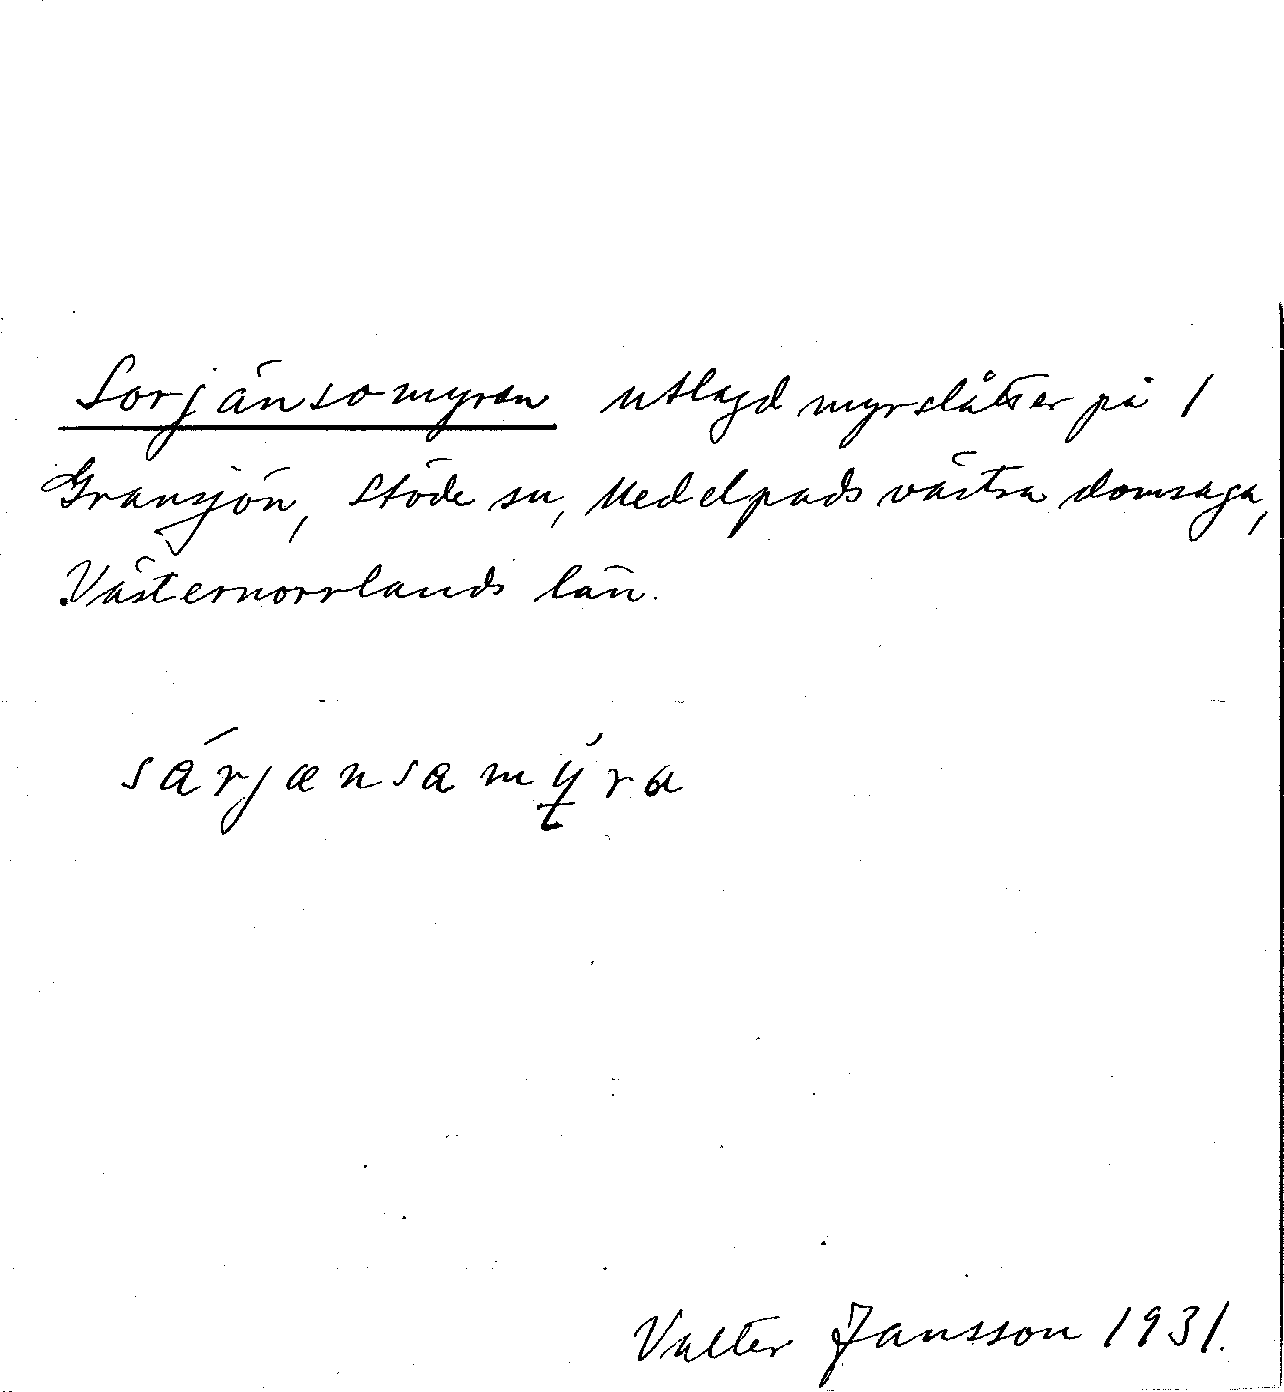 Sorjänsomyran utlagd myrslåtter på 1
Gransjön, Stöde sn, Medelpads västra domsaga,
Västernorrlands län.
sárjænsamý̨ra
Valter Jansson 1931.